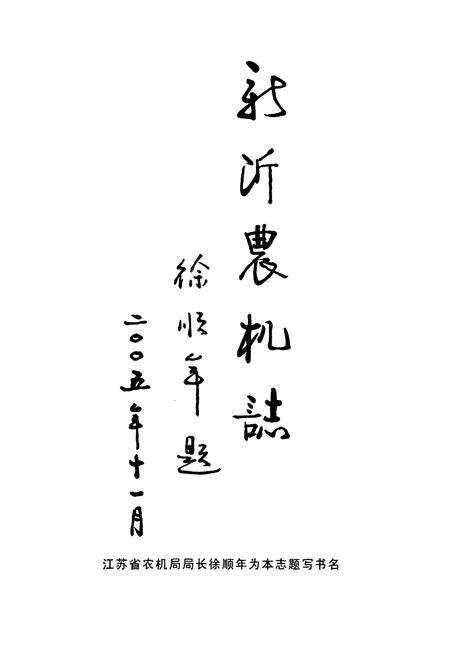 新沂農机誌
徐順年 题
二〇〇五年十一月
江苏省农机局局长徐顺年为本志题写书名